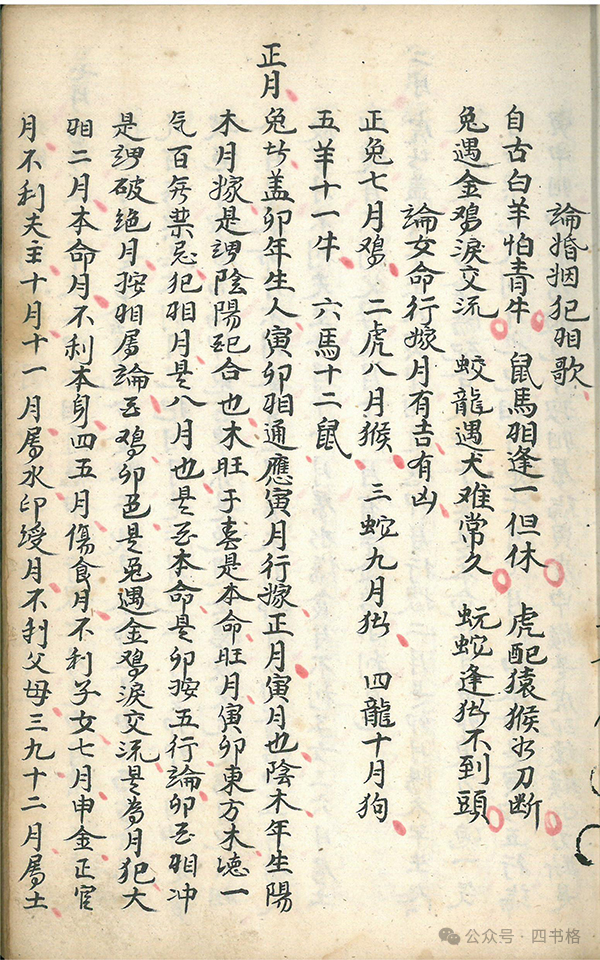 論婚姻犯相歌
自古白羊怕青牛 鼠馬相逢一但休 虎配猿猴如刀断
兔遇金鸡淚交流 蛟龍遇犬难常久 蚖蛇逢猪不到頭
論女命行嫁月有吉有凶
正兔七月鸡 二虎八月猴 三蛇九月猪 四龍十月狗
五羊十一牛 六馬十二鼠
正月
兔此盖卯年生人寅卯相通應寅月行嫁正月寅月也陰木年生陽
木月嫁是謂陰陽配合也木旺于春是本命旺月寅卯東方木德一
気百無禁忌犯相月是八月也是至本命是卯按五行論卯至相冲
是謂破绝月按相属論至鸡卯邑是兔遇金鸡淚交流是為月犯大
相二月本命月不利本身四五月傷食月不利子女七月申金正官
月不利夫主十月十一月属水印绶月不利父母三九十二月属土
公众号·四书格